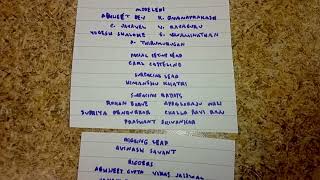 MODELERS
ABHIJEET DEV  K. GNANAPRAKASH
C. SAKAVEL  V. RAJAGURU
YOGESH SHALOKE  S. SWAMINATHAN
D. THIRUMURUGAN
FACIAL SETUP LEAD
CARL COSTELINO
SURFACING LEAD
HIMANSHU KHATRI
SURFACING ARTISTS
ROHAN BORNE  APPALARAJU NALI
SUPRIYA PENDURKAR  CHALLA RAVI BABU
PRASHANT SHIVANKAR
RIGGING LEAD
AVINASH SAVANT
RIGGERS
ABHIJEET GUPTA  VIKAS JAISWAL